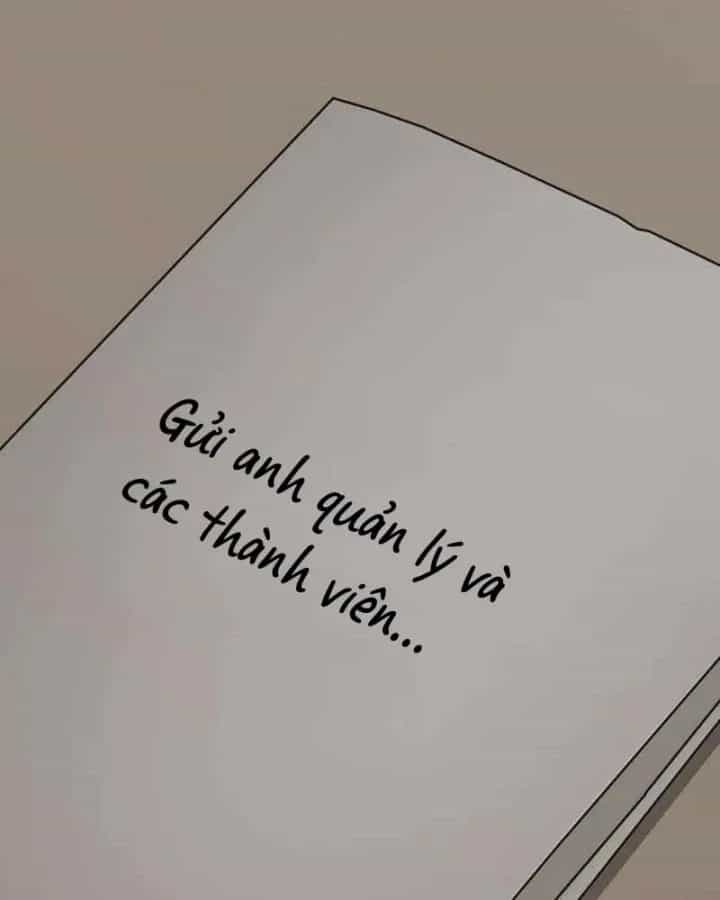 Gửi anh quản lý và
các thành viên...